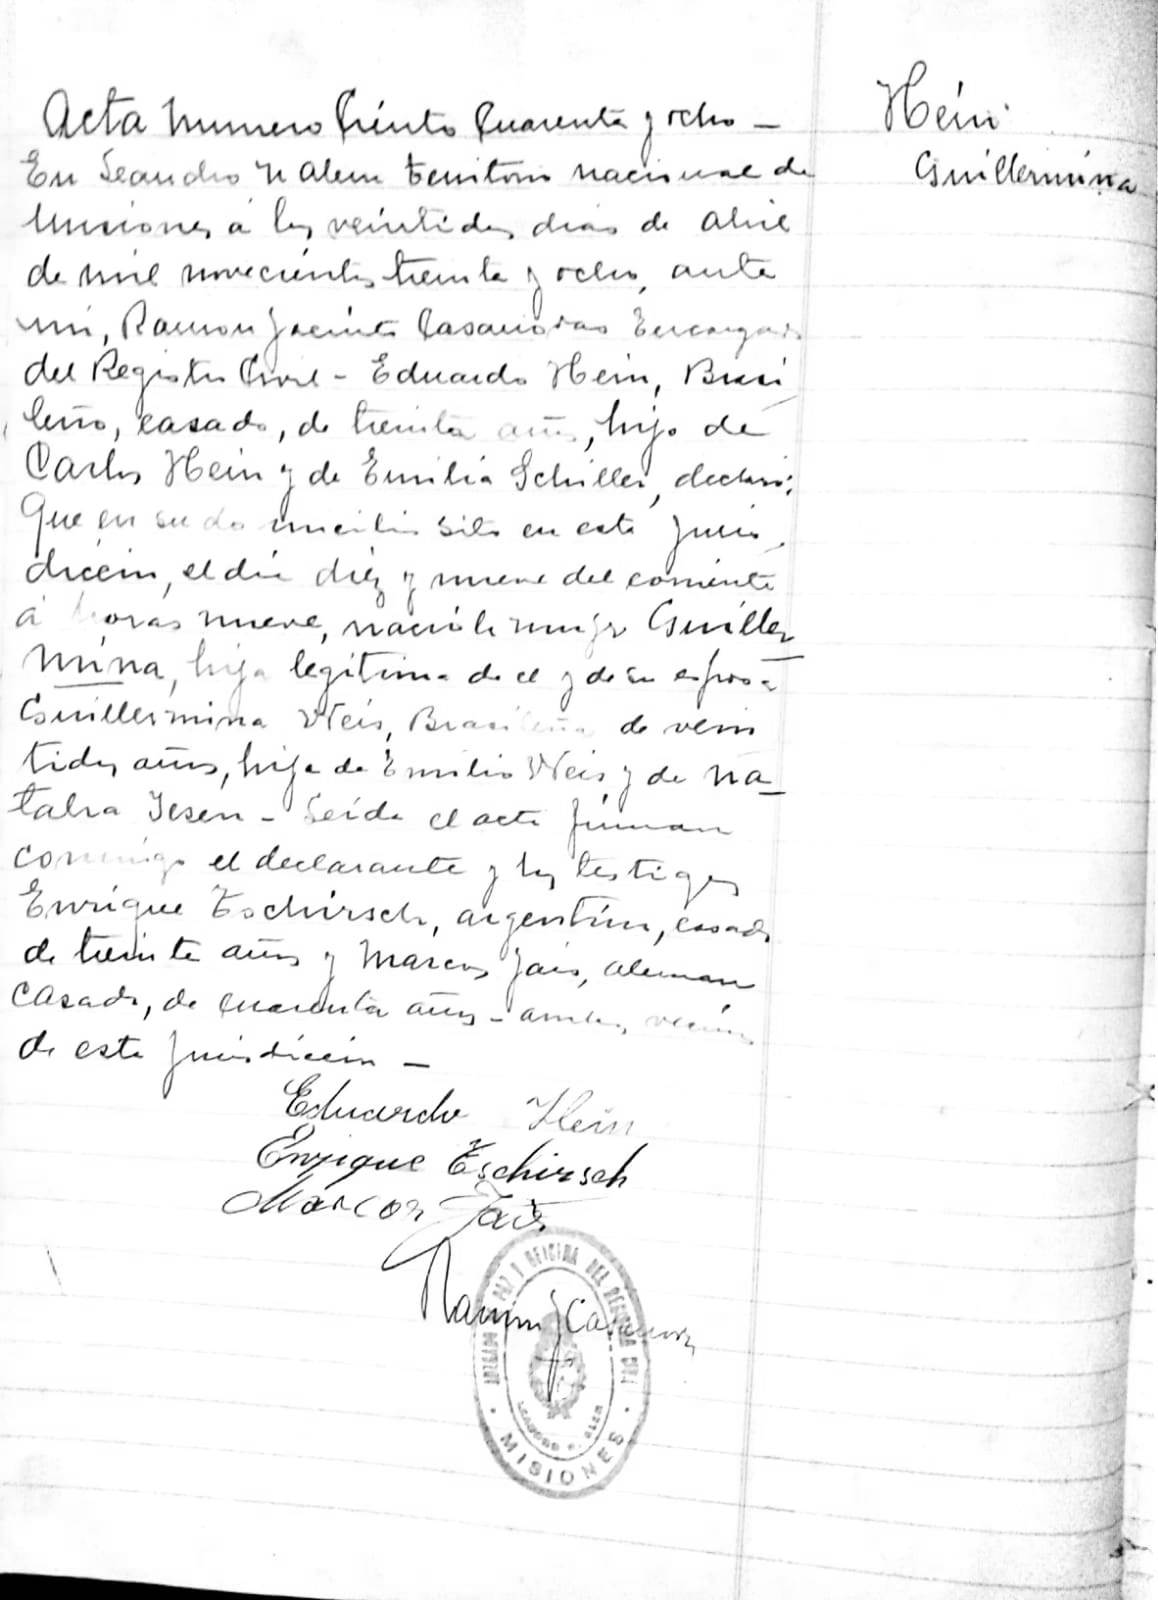 Hein
Guillermina
Acta Numero Ciento Cuarenta y ocho —
En Leandro N Alem territorio nacional de
Misiones á los veintidos dias de abril
de mil novecientos treinta y ocho, ante
mi, Ramon Jacinto Casanovas Encargado
del Registro Civil - Eduardo Hein, Brasi
leño, casado, de treinta años, hijo de
Carlos Hein y de Emilia Schiller, declaró:
Que en su domicilio sito en esta juris
dicción, el dia diez y nueve del corriente
á horas nueve, nació la mujer Guiller
mina, hija legitima de el y de su esposa
Guillermina Weis, Brasileña de vein
tidos años, hija de Emilio Weis y de Na
talia Jesen - Leida el acta firman
conmigo el declarante y los testigos
Enrique Eschirsch, argentino, casado
de treinta años y Marcos Jais, aleman
casado, de cuarenta años - ambos vecinos
de esta jurisdicción —
Eduardo Hein
Enrique Eschirsch
Marcos Jais
Ramon J Casanovas
JUZGADO DE PAZ Y OFICINA DEL REGISTRO CIVIL
LEANDRO N. ALEM
· MISIONES ·